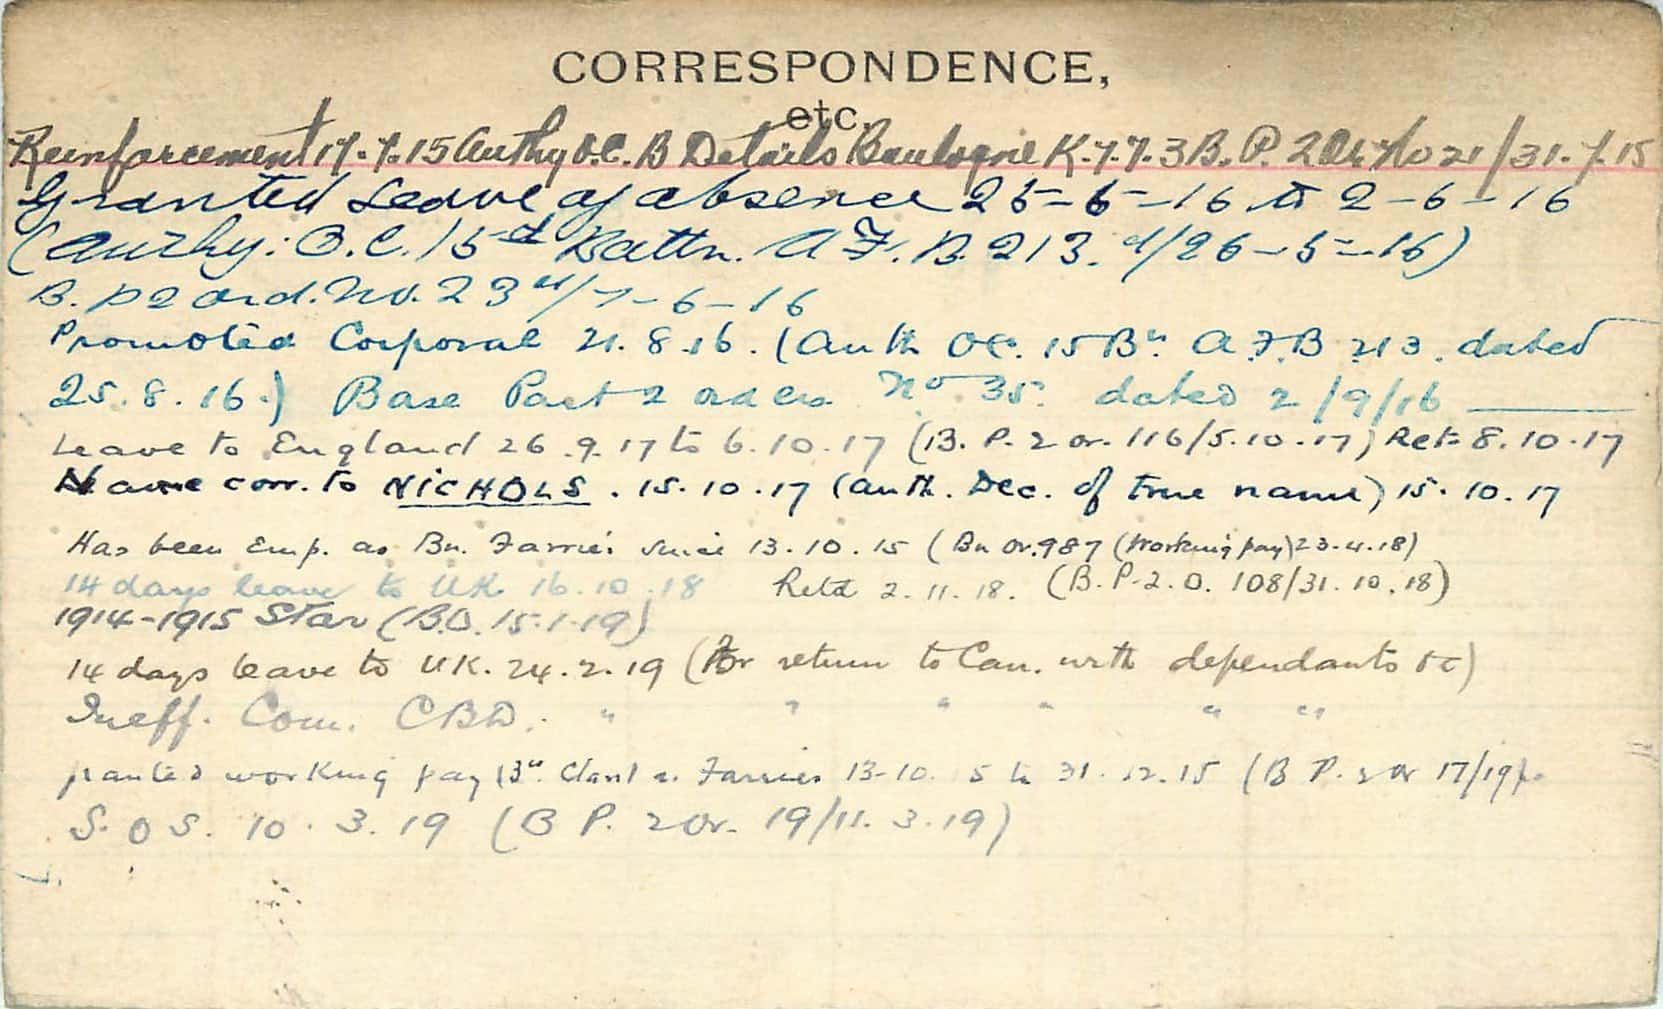 CORRESPONDENCE,
etc.
Reinforcement 17.7.15 Authy O.C. B Details Boulogne K.7.7.3 B.P. 2 Or No 21/31.7.15
Granted Leave of absence 25-5-16 to 2-6-16
(Authy: O.C. 15th Battn. A.F.B. 213. d/26-5-16)
B.P2 Ord. No. 23 d/7-6-16
Promoted Corporal 21.8.16. (Auth OC. 15 Bn. A.F.B 213. dated
25.8.16.) Base Part 2 orders No 35. dated 2/9/16
Leave to England 26.9.17 to 6.10.17 (B.P.2 or. 116/5.10.17) Ret. 8.10.17
Name corr. to NICHOLS. 15.10.17 (auth. Dec. of true name) 15.10.17
Has been Emp. as Bn. Farrier since 13.10.15 (Bn Or. 987 (Working pay) 23.4.18)
14 days leave to UK 16.10.18 Retd 2.11.18. (B.P.2.O. 108/31.10.18)
1914-1915 Star (B.O. 15.1.19)
14 days leave to UK. 24.2.19 (For return to Can. with dependants etc)
Ineff. Com. CBD. " " " " " "
granted working pay as Farrier 13-10. 5 to 31.12.15 (B P. 2 Or 17/19).
S.O S. 10.3.19 (B P. 2 Or. 19/11.3.19)